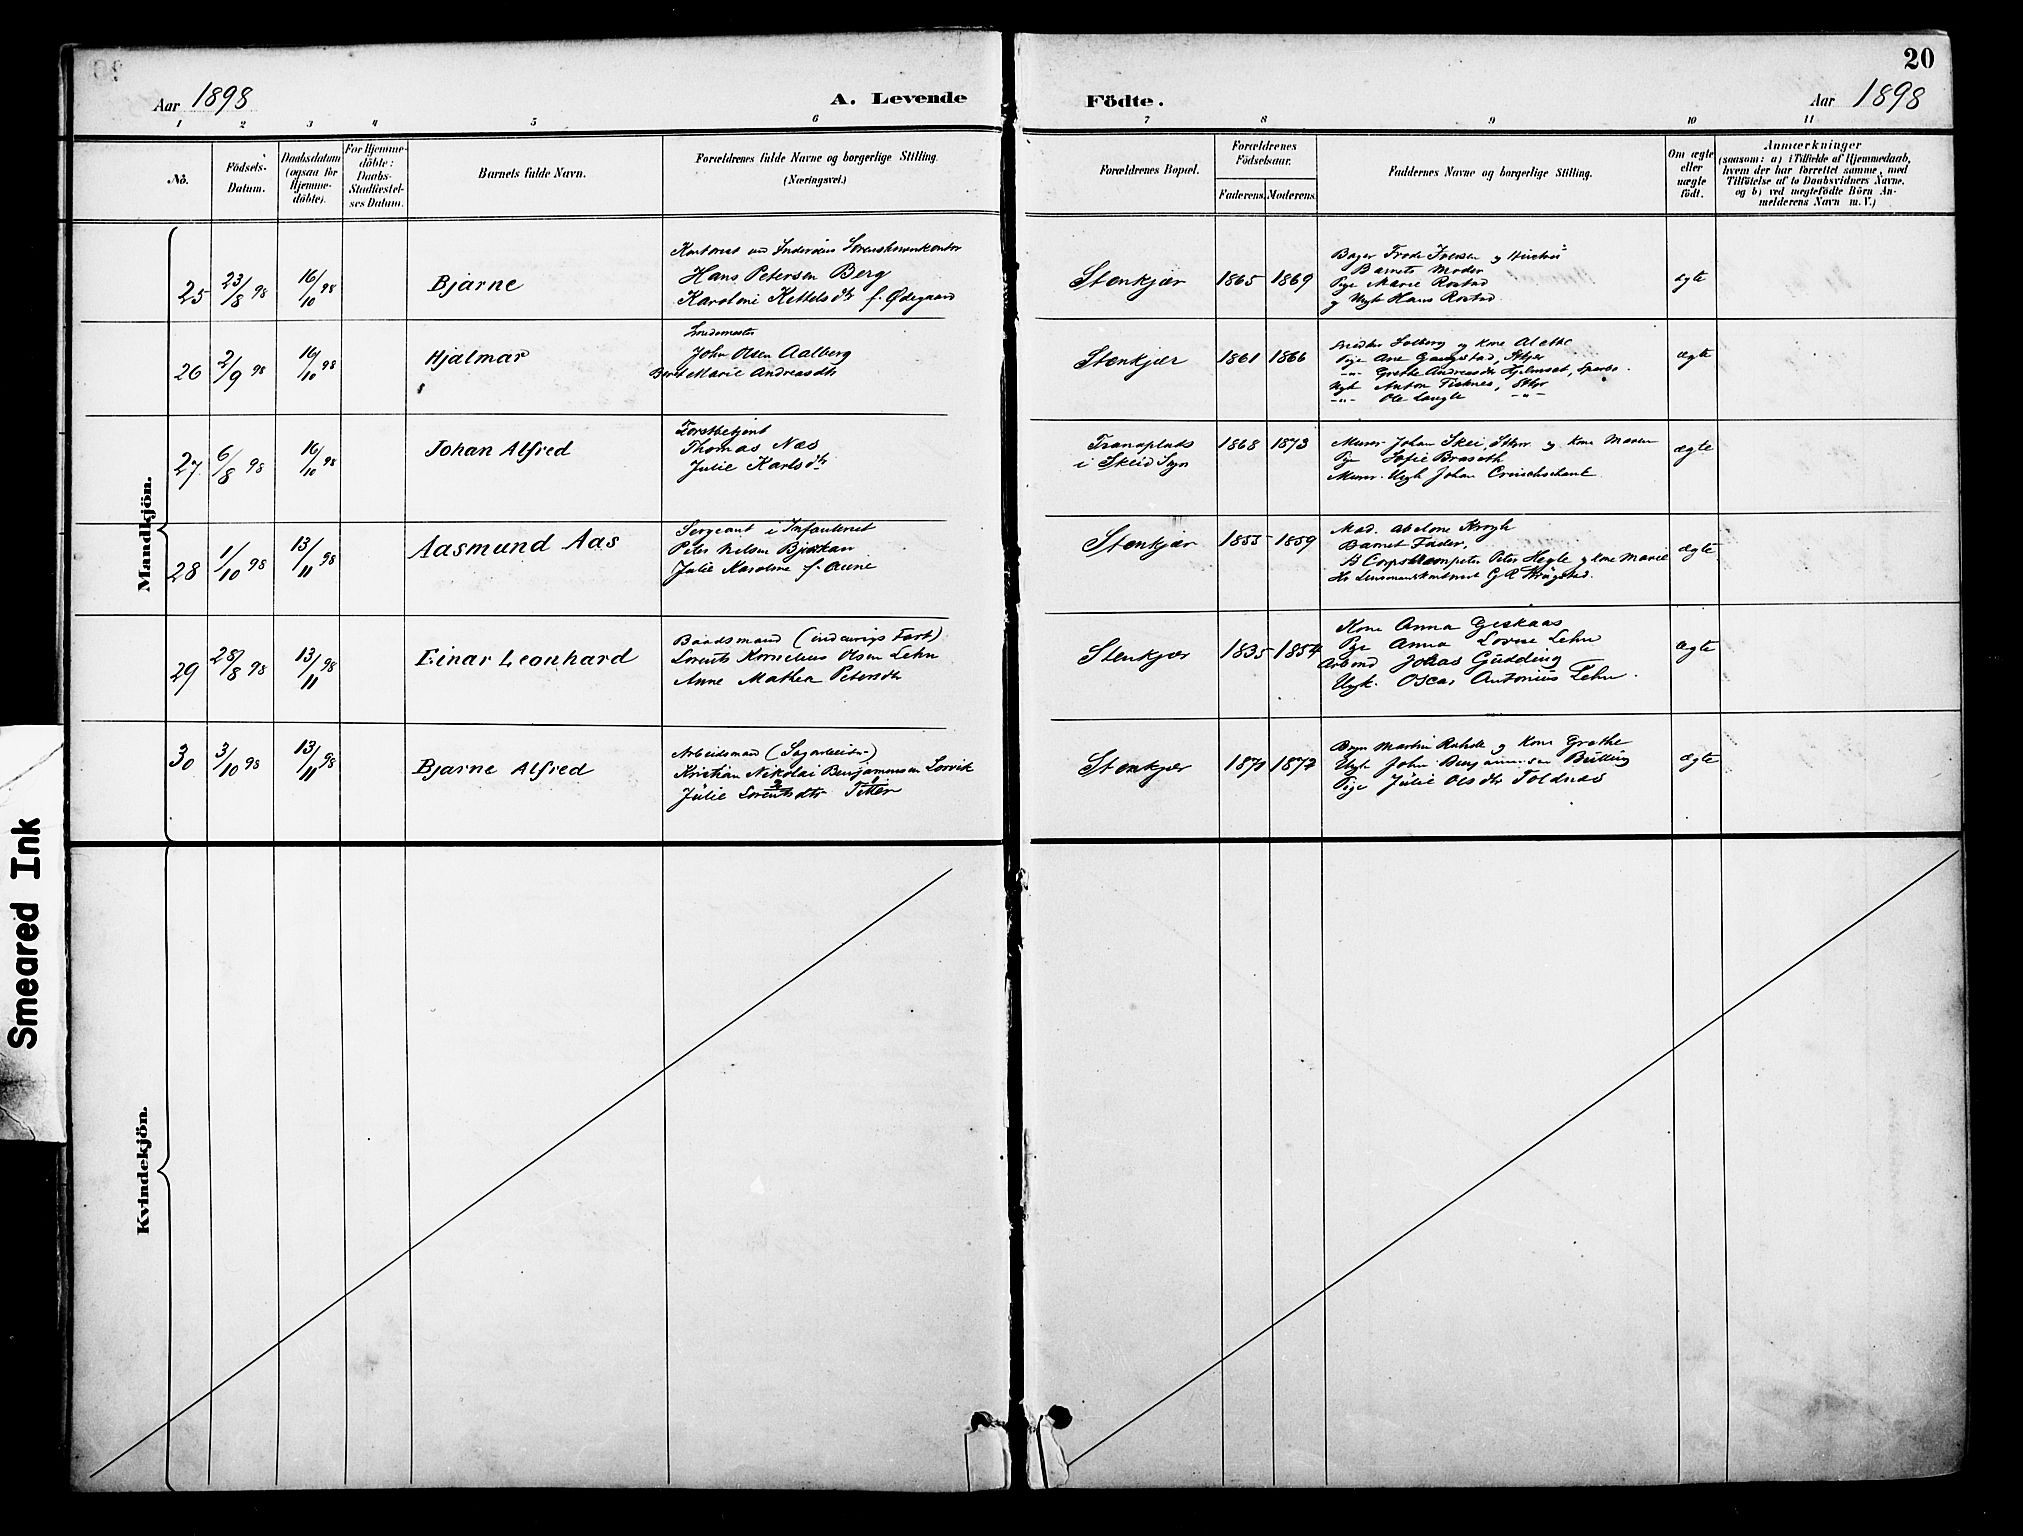 20
Aar 1898
A. Levende
Födte.
Aar 1898
1 2 3 4 5 6 7 8 9 10 11
No.
Födsels-
Datum.
Daabsdatum
(ogsaa for
Hjemme-
döbte).
For Hjemme-
döbte:
Daabs-
Stadfæstel-
ses Datum.
Barnets fulde Navn.
Forældrenes fulde Navne og borgerlige Stilling.
(Næringsvei.)
Forældrenes Bopæl.
Forældrenes
Födselsaar.
Faderens. Moderens.
Faddernes Navne og borgerlige Stilling.
Om ægte
eller
uægte
födt.
Anmærkninger
(saasom: a) i Tilfælde af Hjemmedaab,
hvem der har forrettet samme, med
Tilföielse af to Daabsvidners Navne.
og b) ved uegtefödte Börn An-
melderens Navn m. V.)
Mandkjön.
25 23/8 98 16/10 98 Bjarne
Hans Petersen Berg
Karoline Kettelsdtr f. Ødegaard
Stenkjær 1865 1869
Barnets Moder
Pige Marie Rostad
og Ungk Hans Rostad
ægte
26 2/9 98 16/10 98 Hjalmar
Smedmester
John Olsen Aalberg
Beret Marie Andreasdtr
Stenkjær 1861 1866
Solberg og Kone Alethe
Pige Ane
Grethe Andreasdtr
Ungk Anton
Ole Langli
ægte
27 6/8 98 16/10 98 Johan Alfred
Forstbetjent
Thomas Næs
Julie Karlsdtr
Tranaplads
i Skeid Sgn
1868 1873
Murer Johan Skei, Stkjær og Kone Maren
Pige Sofie
Murer. Ungk Johan
ægte
28 1/10 98 13/11 98 Aasmund Aas
Sergeant i Infanteriet
Peter Nilsen Bjørkan
Julie Karoline f. Aune
Stenkjær 1855 1859
Mad. Abelone Krogh
Barnets Fader,
Peter Hegle og Kone Marie
ægte
29 28/8 98 13/11 98 Einar Leonhard
Baadsmand (indenrigs Fart)
Lorents Kornelius Olsen Lehn
Anne Mathea Petersdtr
Stenkjær 1835 1854
Kone Anna Giskaas
Pige Anna Lovise Lehn
Arbmd Johas Gudding
Ungk. Oscar Antonius Lehn.
ægte
30 3/10 98 13/11 98 Bjarne Alfred
Arbeidsmand (Sagarbeider)
Kristian Nikolai Benjaminsen Lorvik
Julie Lorentsdtr
Stenkjær 1870 1872
Martin og Kone Grethe
Ungk John Benjaminsen
Pige Julie Olsdtr Foldnes
ægte
Kvindekjön.
Smeared Ink